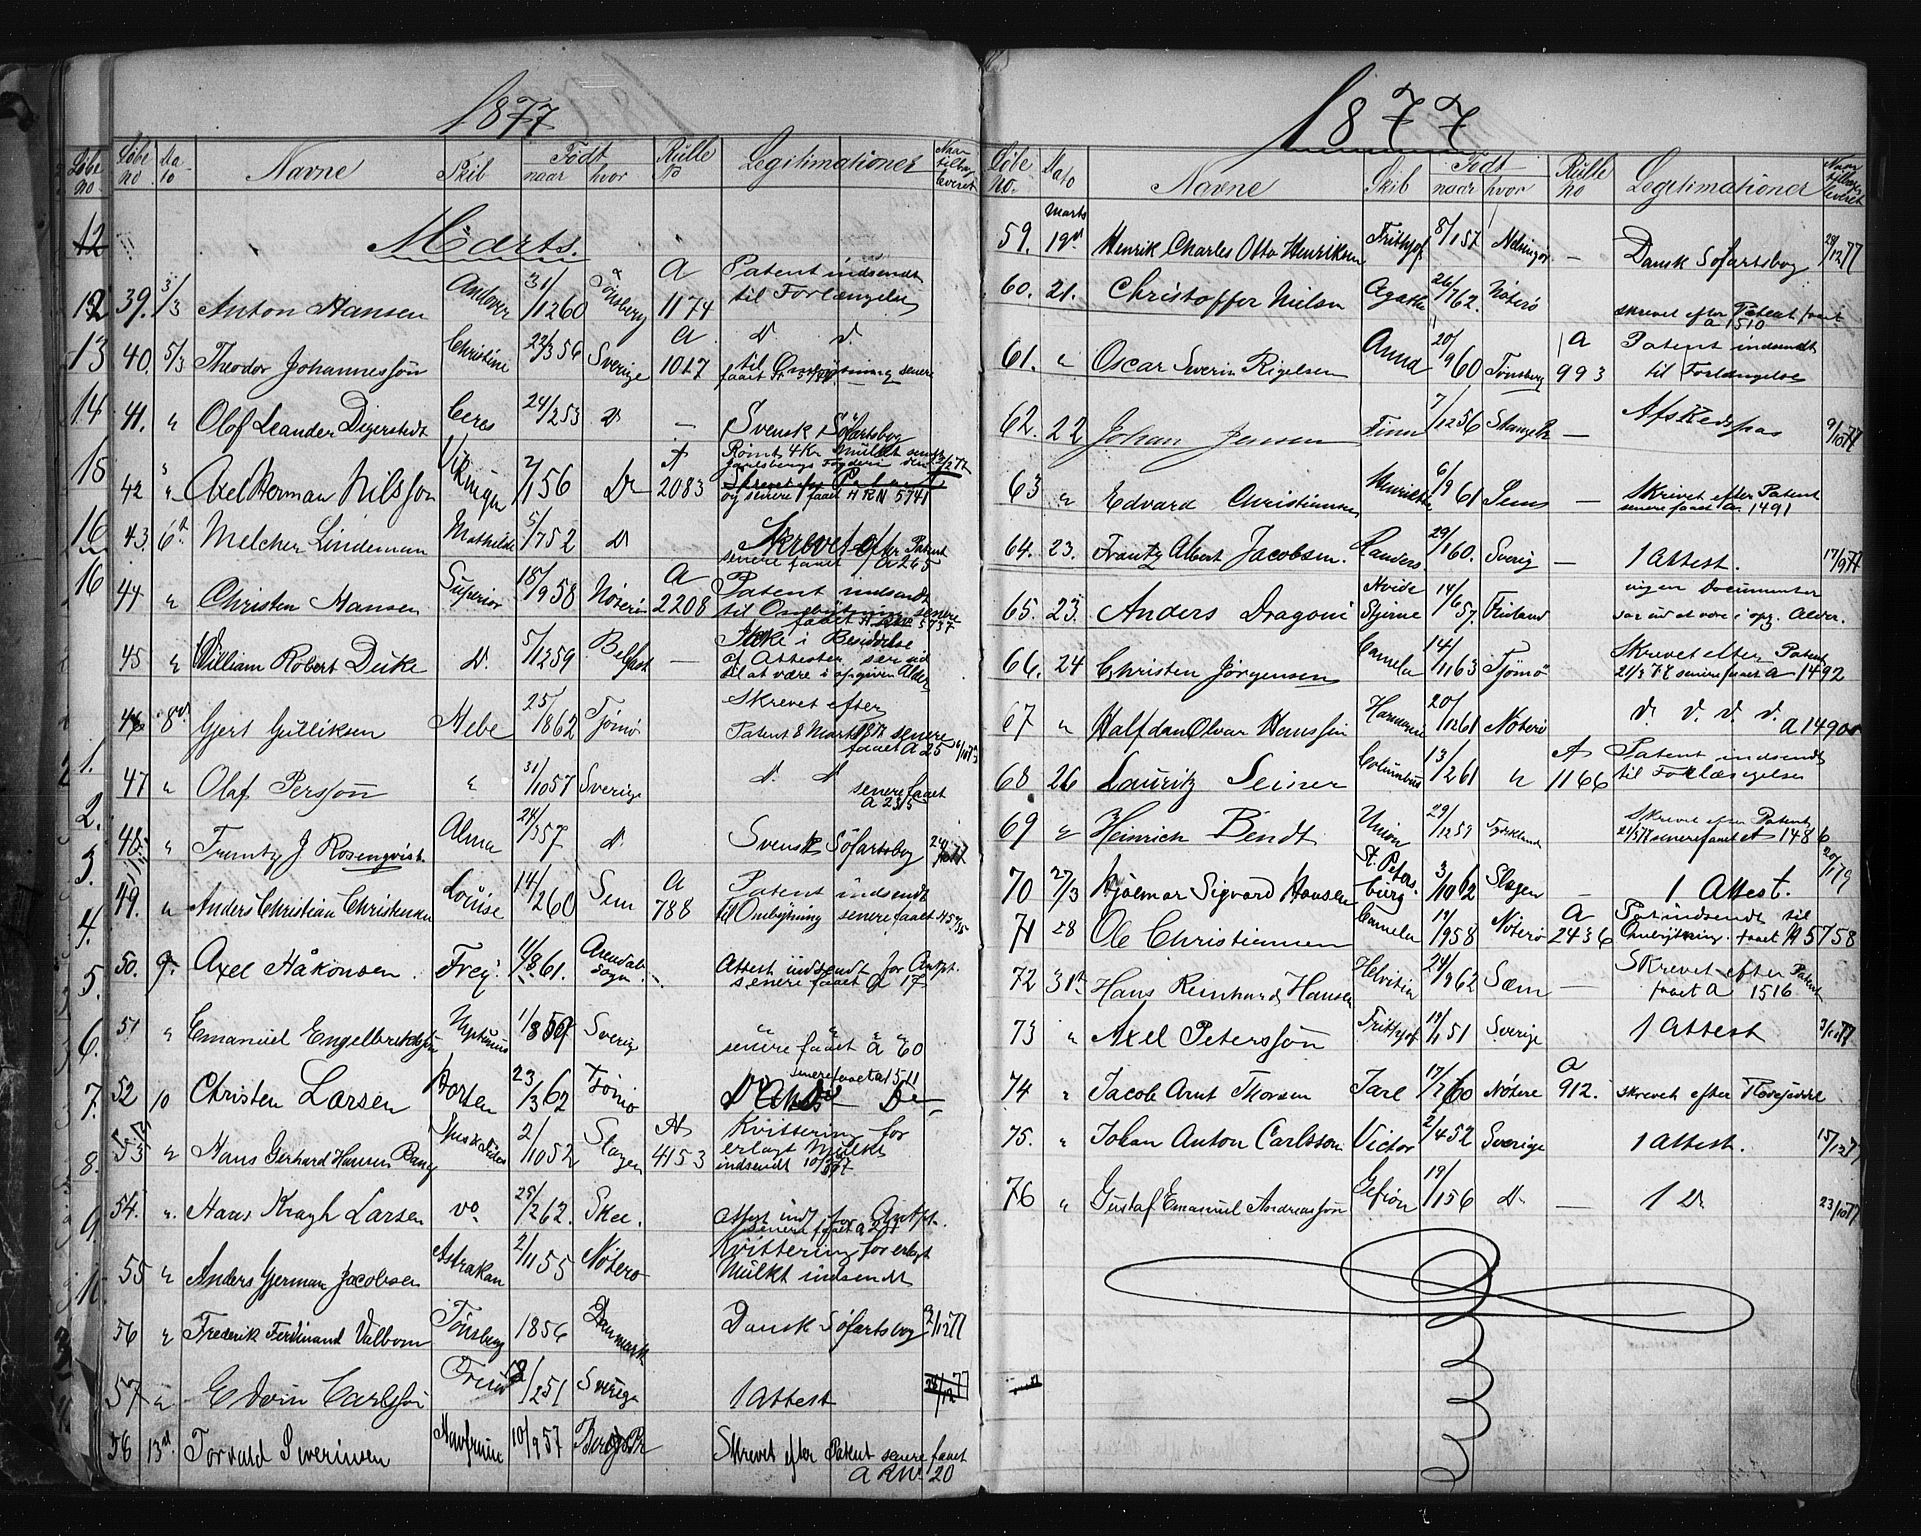 1877
Løbe no Dato Navne Skib Født naar hvor Rulle No Legitimationer Naar tilbageleveret
Marts.
39. 3/3 Anton Hansen Andover 31/12 60 Tønsberg A 1174 Patent indsendt til Forlængelse
40. 5/3 Theodor Johannessøn Christine 22/3 56 Sverige A 1017 d. d. til Ombytning senere faaet
41. " Olof Leander Digerstedt Ceres 24/2 53 d. — Svensk Søfartsbog
42 " Axel Herman Nilsson Viking 2/1 56 Do A 2083 Rømt 4 Kr Mulkt Jarlsbergs Fogderi og senere faaet A RN 5741
43. 6te Melcher Lindeman Mathilde 5/7 52 d. Skrevet efter Patent senere faaet A 265
44 " Christen Hansen Superior 18/9 58 Nøterø A 2208 Patent indsendt til Ombytning senere faaet A 5737
45 " William Robert Duke d. 5/12 59 Belfast — Ikke i Besiddelse af Attester, ser ud til at være i opgiven Alder
46 8de Gjert Gulliksen Hebe 25/8 62 Tjømø Skrevet efter Patent 8 Marts 1877 senere faaet A 25
47 " Olaf Persson " 31/10 57 Sverige d. d. senere faaet A 2315
48 " Frantz J Rosenqvist Alma 24/3 57 d. Svensk Søfartsbog
49. " Anders Christian Christensen Louise 14/2 60 Sem A 788 Patent indsendt til Ombytning senere faaet A 5735
50. 9. Axel Håkonsen. Frey. 4/8 61. Arendals Sogn. — Attest indsendt for Antpt. senere faaet A 17
51 " Emanuel Engelbrektson Neptunus 1/8 59 Sverig " " senere faaet A 60
52 10 Christen Larsen Horten 23/3 62 Tjømø senere faaet A 1511 Do Do
53 " Hans Gerhard Hansen Bang 2/10 52 Slagen A 4153 Kvittering for erlagt Mulkt indsendt
54. " Hans Kragh Larsen do 25/2 62. Skee. Attest inds. for Antpt. senere faaet A 231
55 " Anders Gjerman Jacobsen Astrakan 2/11 55 Nøterø Kvittering for erlagt Mulkt indsendt
56 " Frederik Ferdinand Valbom Tønsberg 1856 Danmark Dansk Søfartsbog 2/12 77
57 " Edvin Carlsson 2/2 51 Sverige 1 Attest
58 13de Torvald Severinsen Havfruen 10/9 57 Skrevet efter Patent senere faaet A RN 20
1877
Løbe no. Dato Navne Skib Født naar hvor Rulle no Legitimationer Naar tilbageleveret
59. Marts 19de Henrik Charles Otto Henriksen Frithjof 8/1 57 Helsingør — Dansk Søfartsbog
60. 21. Christoffer Nielsen Agathe 26/7 62. Nøterø skrevet efter Patent faaet A 1510
61. " Oscar Severin Rigelsen Anna 20/9 60 Tønsberg A 993 Patent indsendt til Forlængelse
62. 22 Johan Jensen Finn 7/12 56 — Afskedspas 9/10 77
63 " Edvard Christiansen Henriette 6/9 61 Sems Skrevet efter Patent senere faaet A. 1491
64. 23. Frantz Albert Jacobsen. Landers. 29/1 60. Sverig — 1 Attest. 17/9 77
65. 23. Anders Dragoni Hvide Stjerne 14/6 57. Finland ingen Documenter saa ud at være i opg. Alder.
66. 24 Christen Jørgensen Camelia 14/11 63 Tjømø Skrevet efter Patent 21/3 77 senere faaet A 1492
67 " Halfdan Olvar Hanssen Harmonie 20/12 61 Nøterø d. d. d. d. A 1490
68 26 Lauritz Seiner Columbus 13/2 61 " A 1166 Patent indsendt til Forlængelse
69 " Heinrich Bendt Union 29/12 59 Skrevet efter Patent 21/3 77 senere faaet A 1486
70 27/3 Hjalmar Sigvard Hansen St. Petersburg 3/10 62 Slagen — 1 Attest. 20/1 79
71 28 Ole Christiansen Camelia 19/9 58 Nøterø A 2436 Pat indsendt til Ombytning. faaet A 5758
72 31te Hans Reinhard Hansen Helvitia 24/9 62 Sæm — Skrevet efter Patent faaet A 1516
73 " Axel Petersson Frithjof 19/1 51 Sverige 1 Attest
74 " Jacob Arnt Thorsen Jarl 17/7 60 Nøterø A 912. skrevet efter
75. " Johan Anton Carlsson Victor 2/4 52 Sverige 1 Attest. 15/12 77
76 " Gustaf Emanuel Andreasson Gefion 19/1 56 d. — 1 D. 23/10 77